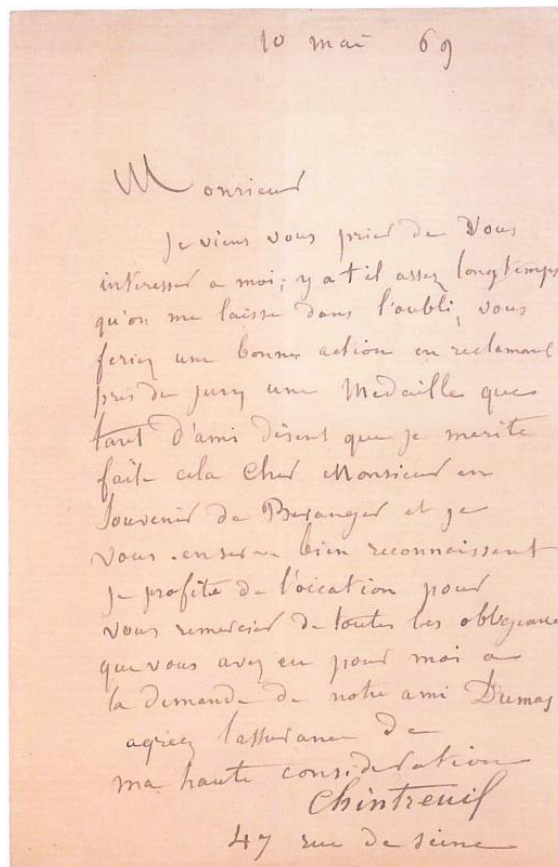 10 mai 69
Monsieur
Je viens vous prier de vous
interesser a moi; y a t il assez longtemps
qu'on me laisse dans l'oubli, vous
feriez une bonne action en reclamant
près de jury une Medaille que
tant d'ami disent que je merite
faite cela Cher Monsieur en
Souvenir de Beranger et je
vous en serai bien reconnaissant
je profite de l'occation pour
vous remercier de toutes les obligeance
que vous avez eu pour moi a
la demande de notre ami Dumas
agreez lassurance de
ma haute consideration
Chintreuil
47 rue de seine